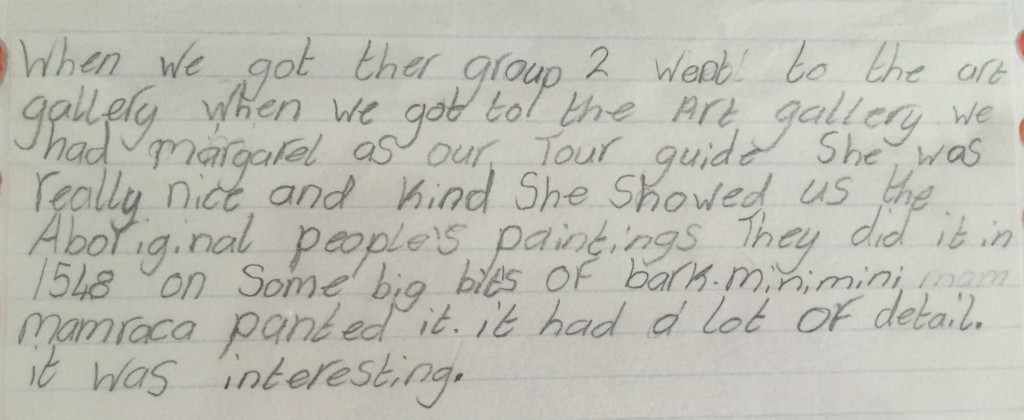 When we got ther group 2 went to the art
gallery when we got to the Art gallery we
had margaret as our Tour guide She was
really nice and kind She Showed us the
Aboriginal people's paintings They did it in
1548 on Some big bits OF bark.minimini mam
mamraca panted it. it had a lot OF detail.
it was interesting.